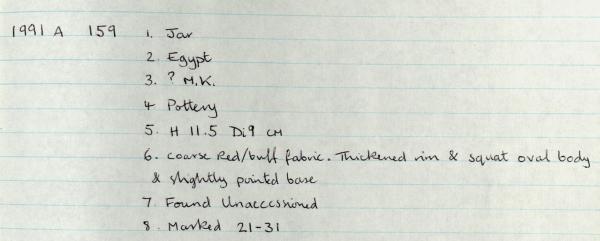 1991 A 159 1. Jar
2. Egypt
3. ? M.K.
4 Pottery
5. H 11.5 Di 9 CM
6. Coarse Red/buff fabric. Thickened rim & squat oval body
& slightly pointed base
7. Found Unaccessioned
8. Marked 21-31